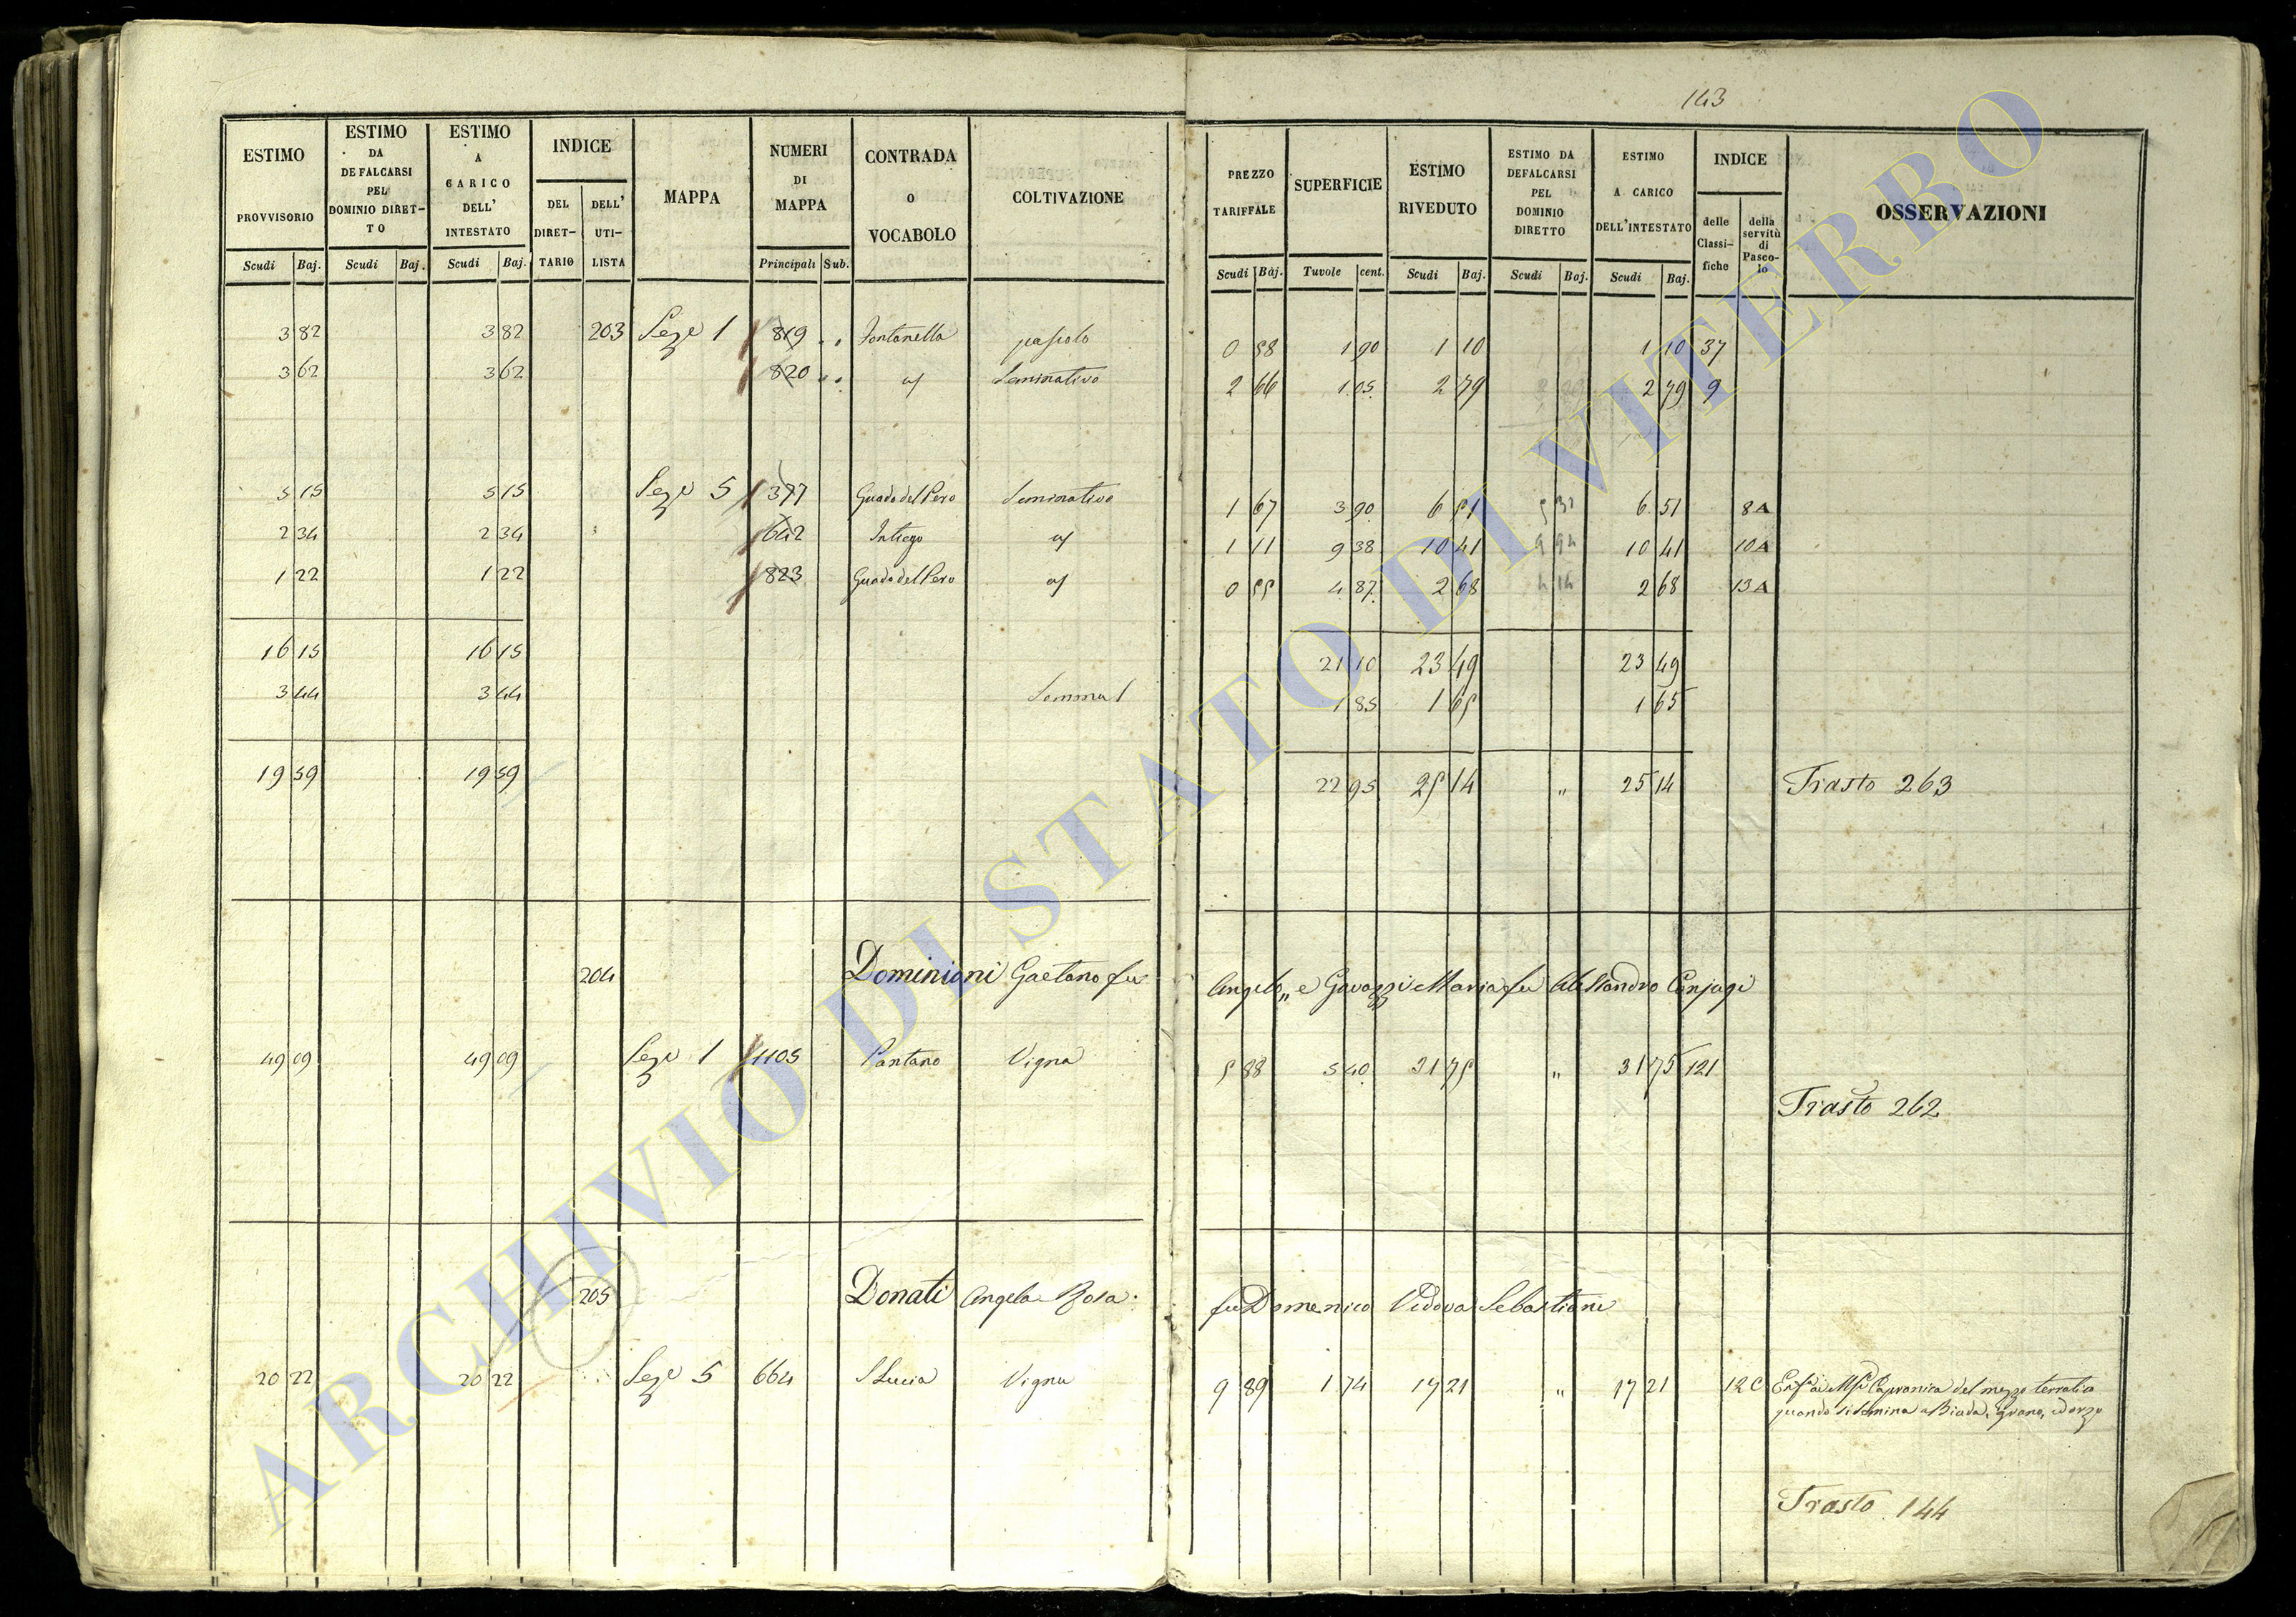 143
ESTIMO PROVVISORIO
ESTIMO DA DEFALCARSI PEL DOMINIO DIRETTO
ESTIMO A CARICO DELL' INTESTATO
INDICE
DEL DIRETTARIO
DELL' UTILISTA
MAPPA
NUMERI DI MAPPA
CONTRADA o VOCABOLO
COLTIVAZIONE
PREZZO TARIFFALE
SUPERFICIE
ESTIMO RIVEDUTO
ESTIMO DA DEFALCARSI PEL DOMINIO DIRETTO
ESTIMO A CARICO DELL'INTESTATO
INDICE
delle Classifiche
della servitù di Pascolo
OSSERVAZIONI
Scudi Baj. Scudi Baj. Scudi Baj. Principali Sub. Scudi Baj. Tavole cent. Scudi Baj. Scudi Baj. Scudi Baj.
3 82 3 82 203 Seze 1 819 " " Fontanella pascolo 0 58 1 90 1 10 1 10 37
3 62 3 62 820 " " Seminativo 2 66 1 05 2 79 2 79 9
5 15 5 15 Seze 5 377 Guado del Pero Seminativo 1 67 3 90 6 51 6 51 8A
2 34 2 34 642 1 11 9 38 10 41 10 41 10A
1 22 1 22 823 Guado del Pero 0 55 4 87 2 68 2 68 13A
16 15 16 15 21 10 23 49 23 49
3 44 3 44 Somma 1 85 1 65 1 65
19 59 19 59 22 95 25 14 " 25 14 Trasto 263
204 Dominioni Gaetano fu Angelo " e Gavazzi Maria fu Alessandro Conjugi
49 09 49 09 Seze 1 1105 Pantano Vigna 5 88 5 40 31 75 " 31 75 121
Trasto 262
205 Donati Angela Rosa fu Domenico Vedova Sebastiani
20 22 20 22 Seze 5 664 S Lucia Vigna 9 89 1 74 17 21 " 17 21 12C Capranica del mezzo terratico
quando si semina a Biada, grano, ed orzo
Trasto 144
ARCHIVIO DI STATO DI VITERBO